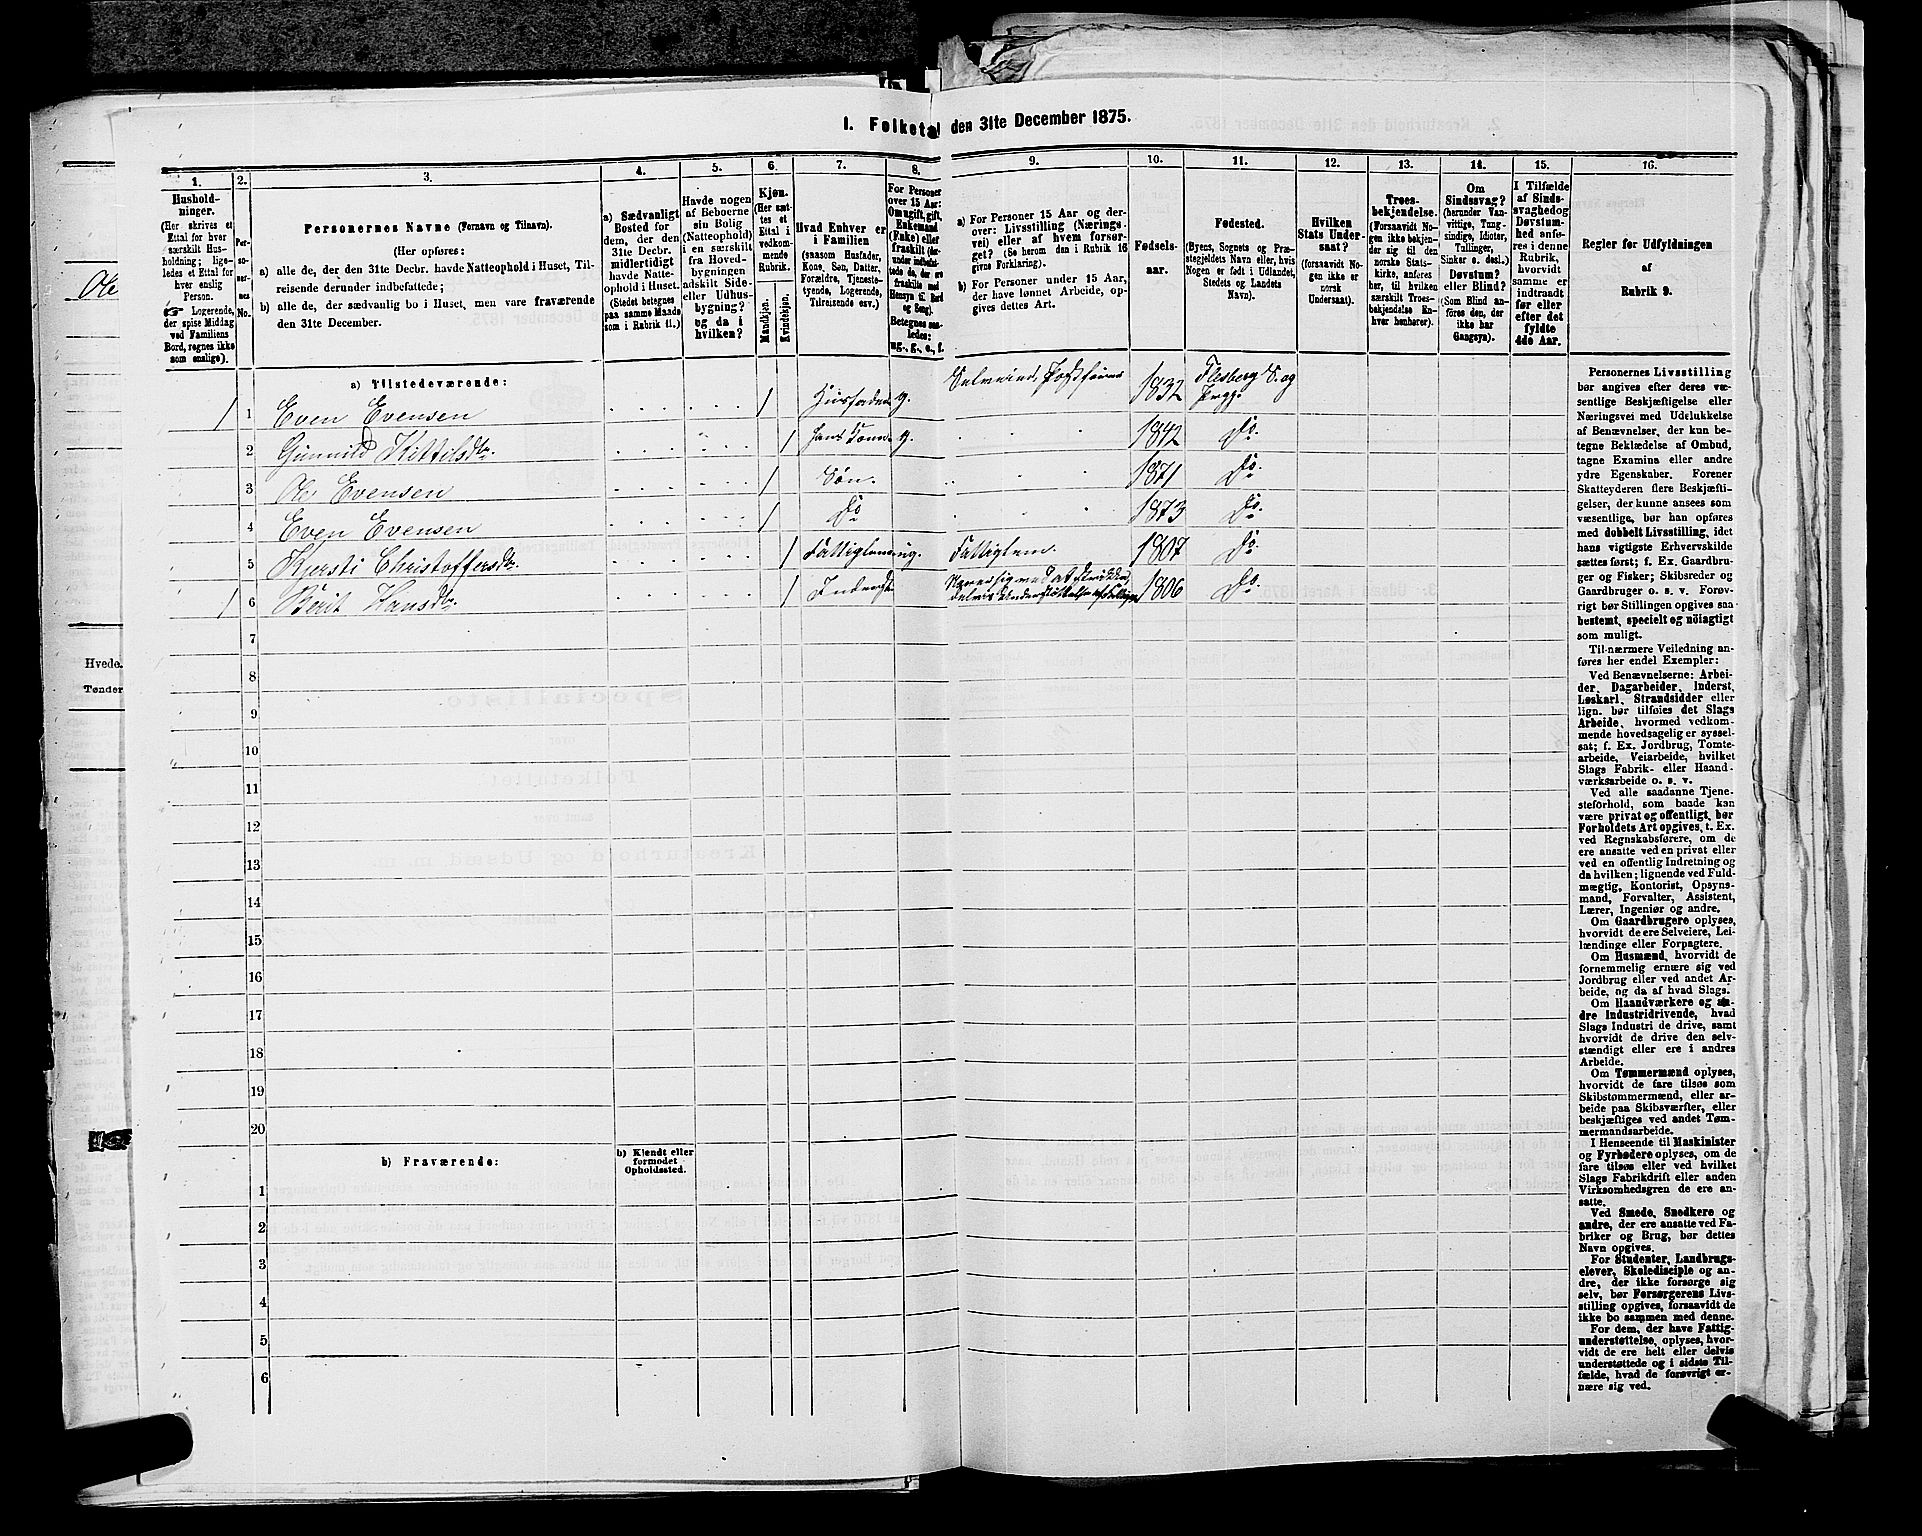 I. Folketal den 31te December 1875.
1.
Hushold-
ninger.
(Her skrives et
Ettal for hver
særskilt Hus-
holdning; lige-
ledes et Ettal for
hver enslig
Person.
☞ Logerende,
der spise Middag
ved Familiens
Bord, regnes ikke
som enslige).
2.
Per-
so-
ner-
nes
No.
3.
Personernes Navne (Fornavn og Tilnavn).
(Her opføres:
a) alle de, der den 31te Decbr. havde Natteophold i Huset, Til-
reisende derunder indbefattede;
b) alle de, der sædvanlig bo i Huset, men vare fraværende
den 31te December.
4.
a) Sædvanligt
Bosted for
dem, der den
31te Decbr.
midlertidigt
havde Natte-
ophold i Huset.
(Stedet betegnes
paa samme Maade
som i Rubrik 11.)
5.
Havde nogen
af Beboerne
sin Bolig
(Natteophold)
i en særskilt
fra Hoved-
bygningen
adskilt Side-
eller Udhus-
bygning?
og da i
hvilken?
6.
Kjøn.
(Her sæt-
tes et
Ettal i
vedkom-
mende
Rubrik.
Mandkjøn.
Kvindekjøn.
7.
Hvad Enhver er
i Familien
(saasom Husfader,
Kone, Søn, Datter,
Forældre, Tjeneste-
tyende, Logerende,
Tilreisende osv.)
8.
For Personer
over 15 Aar:
Om ugift, gift,
Enkemand
(Enke) eller
fraskilt
Betegnes saa-
ledes:
ug., g., e., f.
9.
a) For Personer 15 Aar og der-
over: Livsstilling (Nærings-
vei) eller af hvem forsør-
get? (Se herom den i Rubrik 16
givne Forklaring).
b) For Personer under 15 Aar,
der have lønnet Arbeide, op-
gives dettes Art.
10.
Fødsels-
aar.
11.
Fødested.
(Byens, Sognets og Præ-
stegjeldets Navn eller, hvis
Nogen er født i Udlandet,
Stedets og Landets
Navn).
12.
Hvilken
Stats Under-
saat?
(forsaavidt No-
gen ikke er
norsk
Undersaat).
13.
Troes-
bekjendelse.
(Forsaavidt No-
gen ikke bekjen-
der sig til den
norske Stats-
kirke, anføres
her, til hvilken
særskilt Troes-
bekjendelse En-
hver henhører).
14.
Om
Sindssvag?
(herunder Van-
vittige, Tung-
sindige, Idioter,
Tullinger,
Sinker o. desl.).
Døvstum?
eller Blind?
(Som Blind an-
føres den, der
ikke har
Gangsyn).
15.
I Tilfælde
af Sinds-
svaghed og
Døvstum-
hed anfø-
res i denne
Rubrik,
hvorvidt
samme er
indtraadt
før eller
efter det
fyldte
4de Aar.
16.
Regler for Udfyldningen
af
Rubrik 9.
a) Tilstedeværende:
1 1 Even Evensen 1 Husfader g. Selveier, 1832 Flesberg S. og Prgj.
2 Gunnild Kittilsdtr. 1 hans Kone g. 1842 Do
3 Ole Evensen 1 Søn. 1871 Do.
4 Even Evensen 1 Do 1873 Do.
5 Kjersti Christoffersdtr. 1 Fattiglem ug. Fattiglem. 1807 Do
1 6 Berit Hansdtr. 1 Inderst 1806 Do.
7
8
9
10
11
12
13
14
15
16
17
18
19
20
b) Fraværende:
b) Kjendt eller
formodet
Opholdssted.
1
2
3
4
5
6
Personernes Livsstilling
bør angives efter deres væ-
sentlige Beskjæftigelse eller
Næringsvei med Udelukkelse
af Benævnelser, der kun be-
tegne Beklædelse af Ombud,
tagne Examina eller andre
ydre Egenskaber. Forener
Skatteyderen flere Beskjæfti-
gelser, der kunne ansees som
væsentlige, bør han opføres
med dobbelt Livsstilling, idet
hans vigtigste Erhvervskilde
sættes først; f. Ex. Gaardbru-
ger og Fisker; Skibsreder og
Gaardbruger o. s. v. Forøv-
rigt bør Stillingen opgives saa
bestemt, specielt og nöiagtigt
som muligt.
Til nærmere Veiledning an-
føres her endel Exempler:
Ved Benævnelserne: Arbei-
der, Dagarbeider, Inderst,
Løskarl, Strandsidder eller
lign. bør tilføies det Slags
Arbeide, hvormed vedkom-
mende hovedsagelig er syssel-
sat; f. Ex. Jordbrug, Tomte-
arbeide, Veiarbeide, hvilket
Slags Fabrik- eller Haand-
værksarbeide o. s. v.
Ved alle saadanne Tjene-
steforhold, som baade kan
være privat og offentligt, bør
Forholdets Art opgives, t. Ex.
ved Regnskabsførere, om de
ere ansatte ved en privat eller
ved en offentlig Indretning og
da hvilken; lignende ved Fuld-
mægtig, Kontorist, Opsyns-
mand, Forvalter, Assistent,
Lærer, Ingeniør og andre.
Om Gaardbrugere oplyses,
hvorvidt de ere Selveiere, Lei-
lændinge eller Forpagtere.
Om Husmænd, hvorvidt de
fornemmelig ernære sig ved
Jordbrug eller ved andet Ar-
beide, og da af hvad Slags.
Om Haandværkere og an-
dre Industridrivende, hvad
Slags Industri de drive, samt
hvorvidt de drive den selv-
stændigt eller ere i andres
Arbeide.
Om Tømmermænd oplyses,
hvorvidt de fare tilsøs som
Skibstømmermænd, eller ar-
beide paa Skibsværfter, eller
beskjæftiges ved andet Tøm-
mermandsarbeide.
I Henseende til Maskinister
og Fyrbødere oplyses, om de
fare tilsøs eller ved hvilket
Slags Fabrikdrift eller anden
Virksomhedsgren de ere an-
satte.
Ved Smede, Snedkere og
andre, der ere ansatte ved Fa-
briker og Brug, bør dettes
Navn opgives.
For Studenter, Landbrugs-
elever, Skoledisciple og an-
dre, der ikke forsørge sig
selv, bør Forsørgerens Livs-
stilling opgives, forsaavidt de
ikke bo sammen med denne.
For dem, der have Fattig-
understøttelse, oplyses, hvor-
vidt de ere helt eller delvis
understøttede og i sidste Til-
fælde, hvad de forøvrigt er-
nære sig ved.
Ole
Hvede.
Tønder